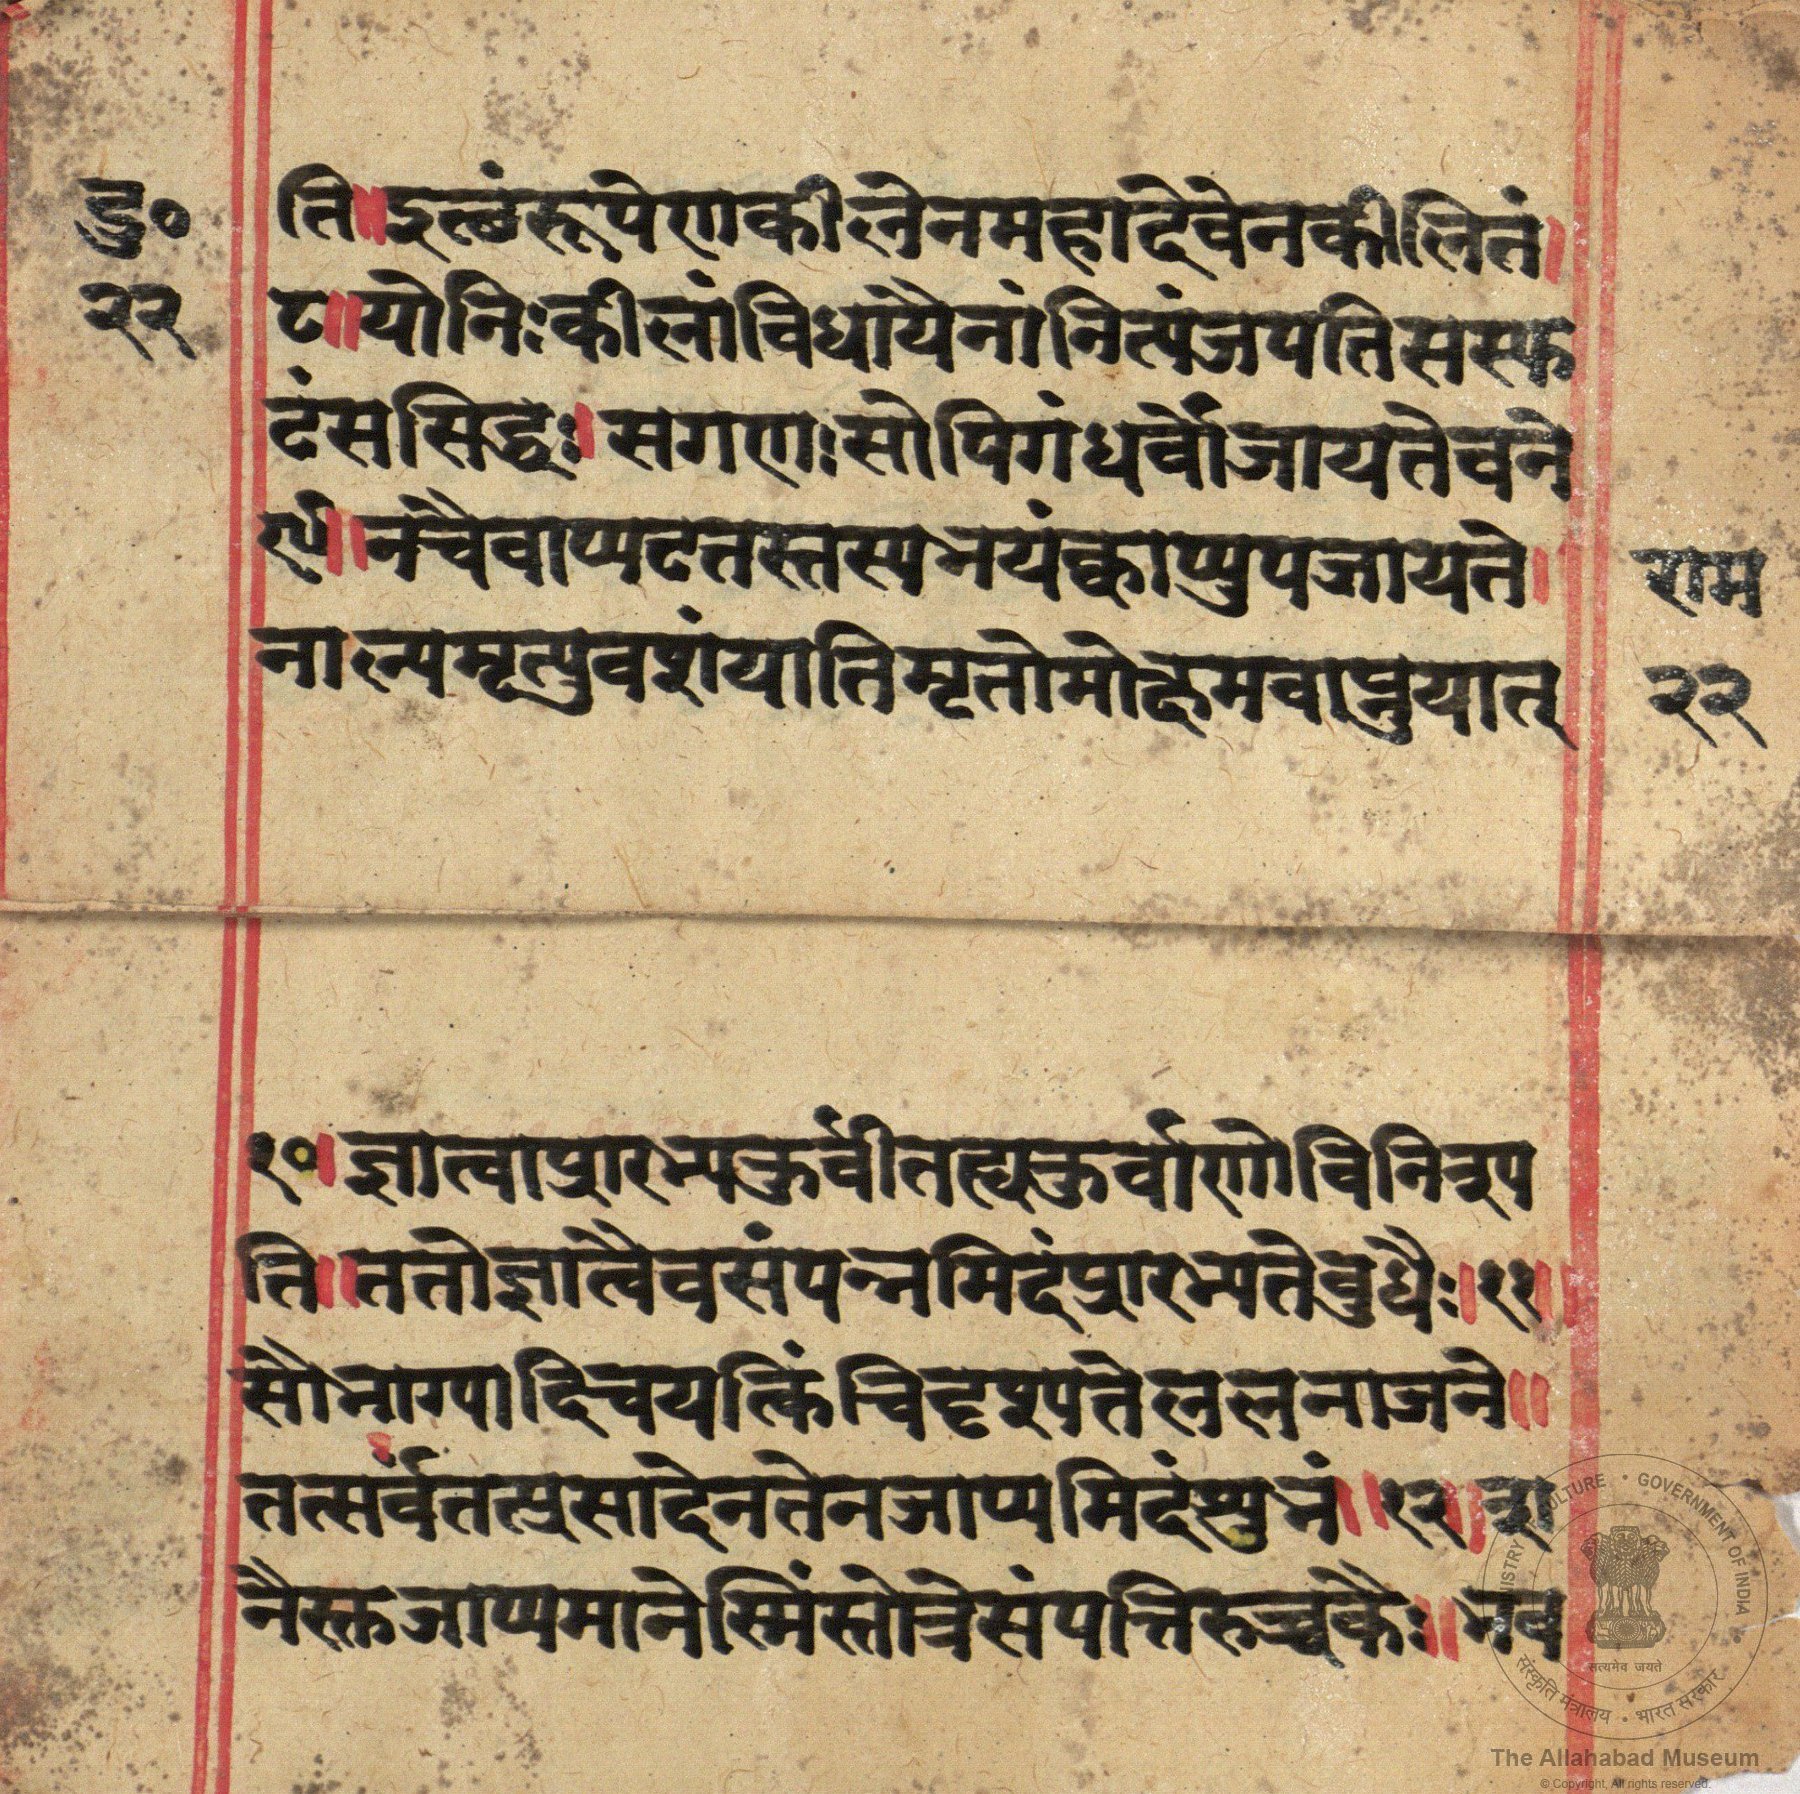 दु०
२२
ति॥इत्थंरूपेणकीलेनमहादेवेनकीलितं।
८॥योनिःकीलांविधायैनांनित्यंजपतिसस्फ
टंससिद्धः।सगणःसोपिगंधर्वोजायतेवने
र्९॥नचैवाप्यटतस्तस्यभयंक्वाप्युपजायते।
नाल्पमृत्युवशंयातिमृतोमोक्षमवाप्नुयात्
राम
२२
१०।ज्ञात्वाप्रारभ्यकुर्वीतह्यकुर्वाणोविनिश्प
ति॥ततोज्ञात्वैवसंपन्नमिदंप्रारभ्यतेबुधैः।११॥
सौभाग्यादिचयत्किंचिदृश्यतेललनाजने॥
तत्सर्वंतत्प्रसादेनतेनजाप्यमिदंशुभं॥१२।श
नैस्तजाप्यमानेस्मिंस्तोत्रेसंपत्तिरुच्चकैः॥भव
MINISTRY OF CULTURE • GOVERNMENT OF INDIA •
सत्यमेव जयते
संस्कृति मंत्रालय • भारत सरकार
The Allahabad Museum
© Copyright, All rights reserved.